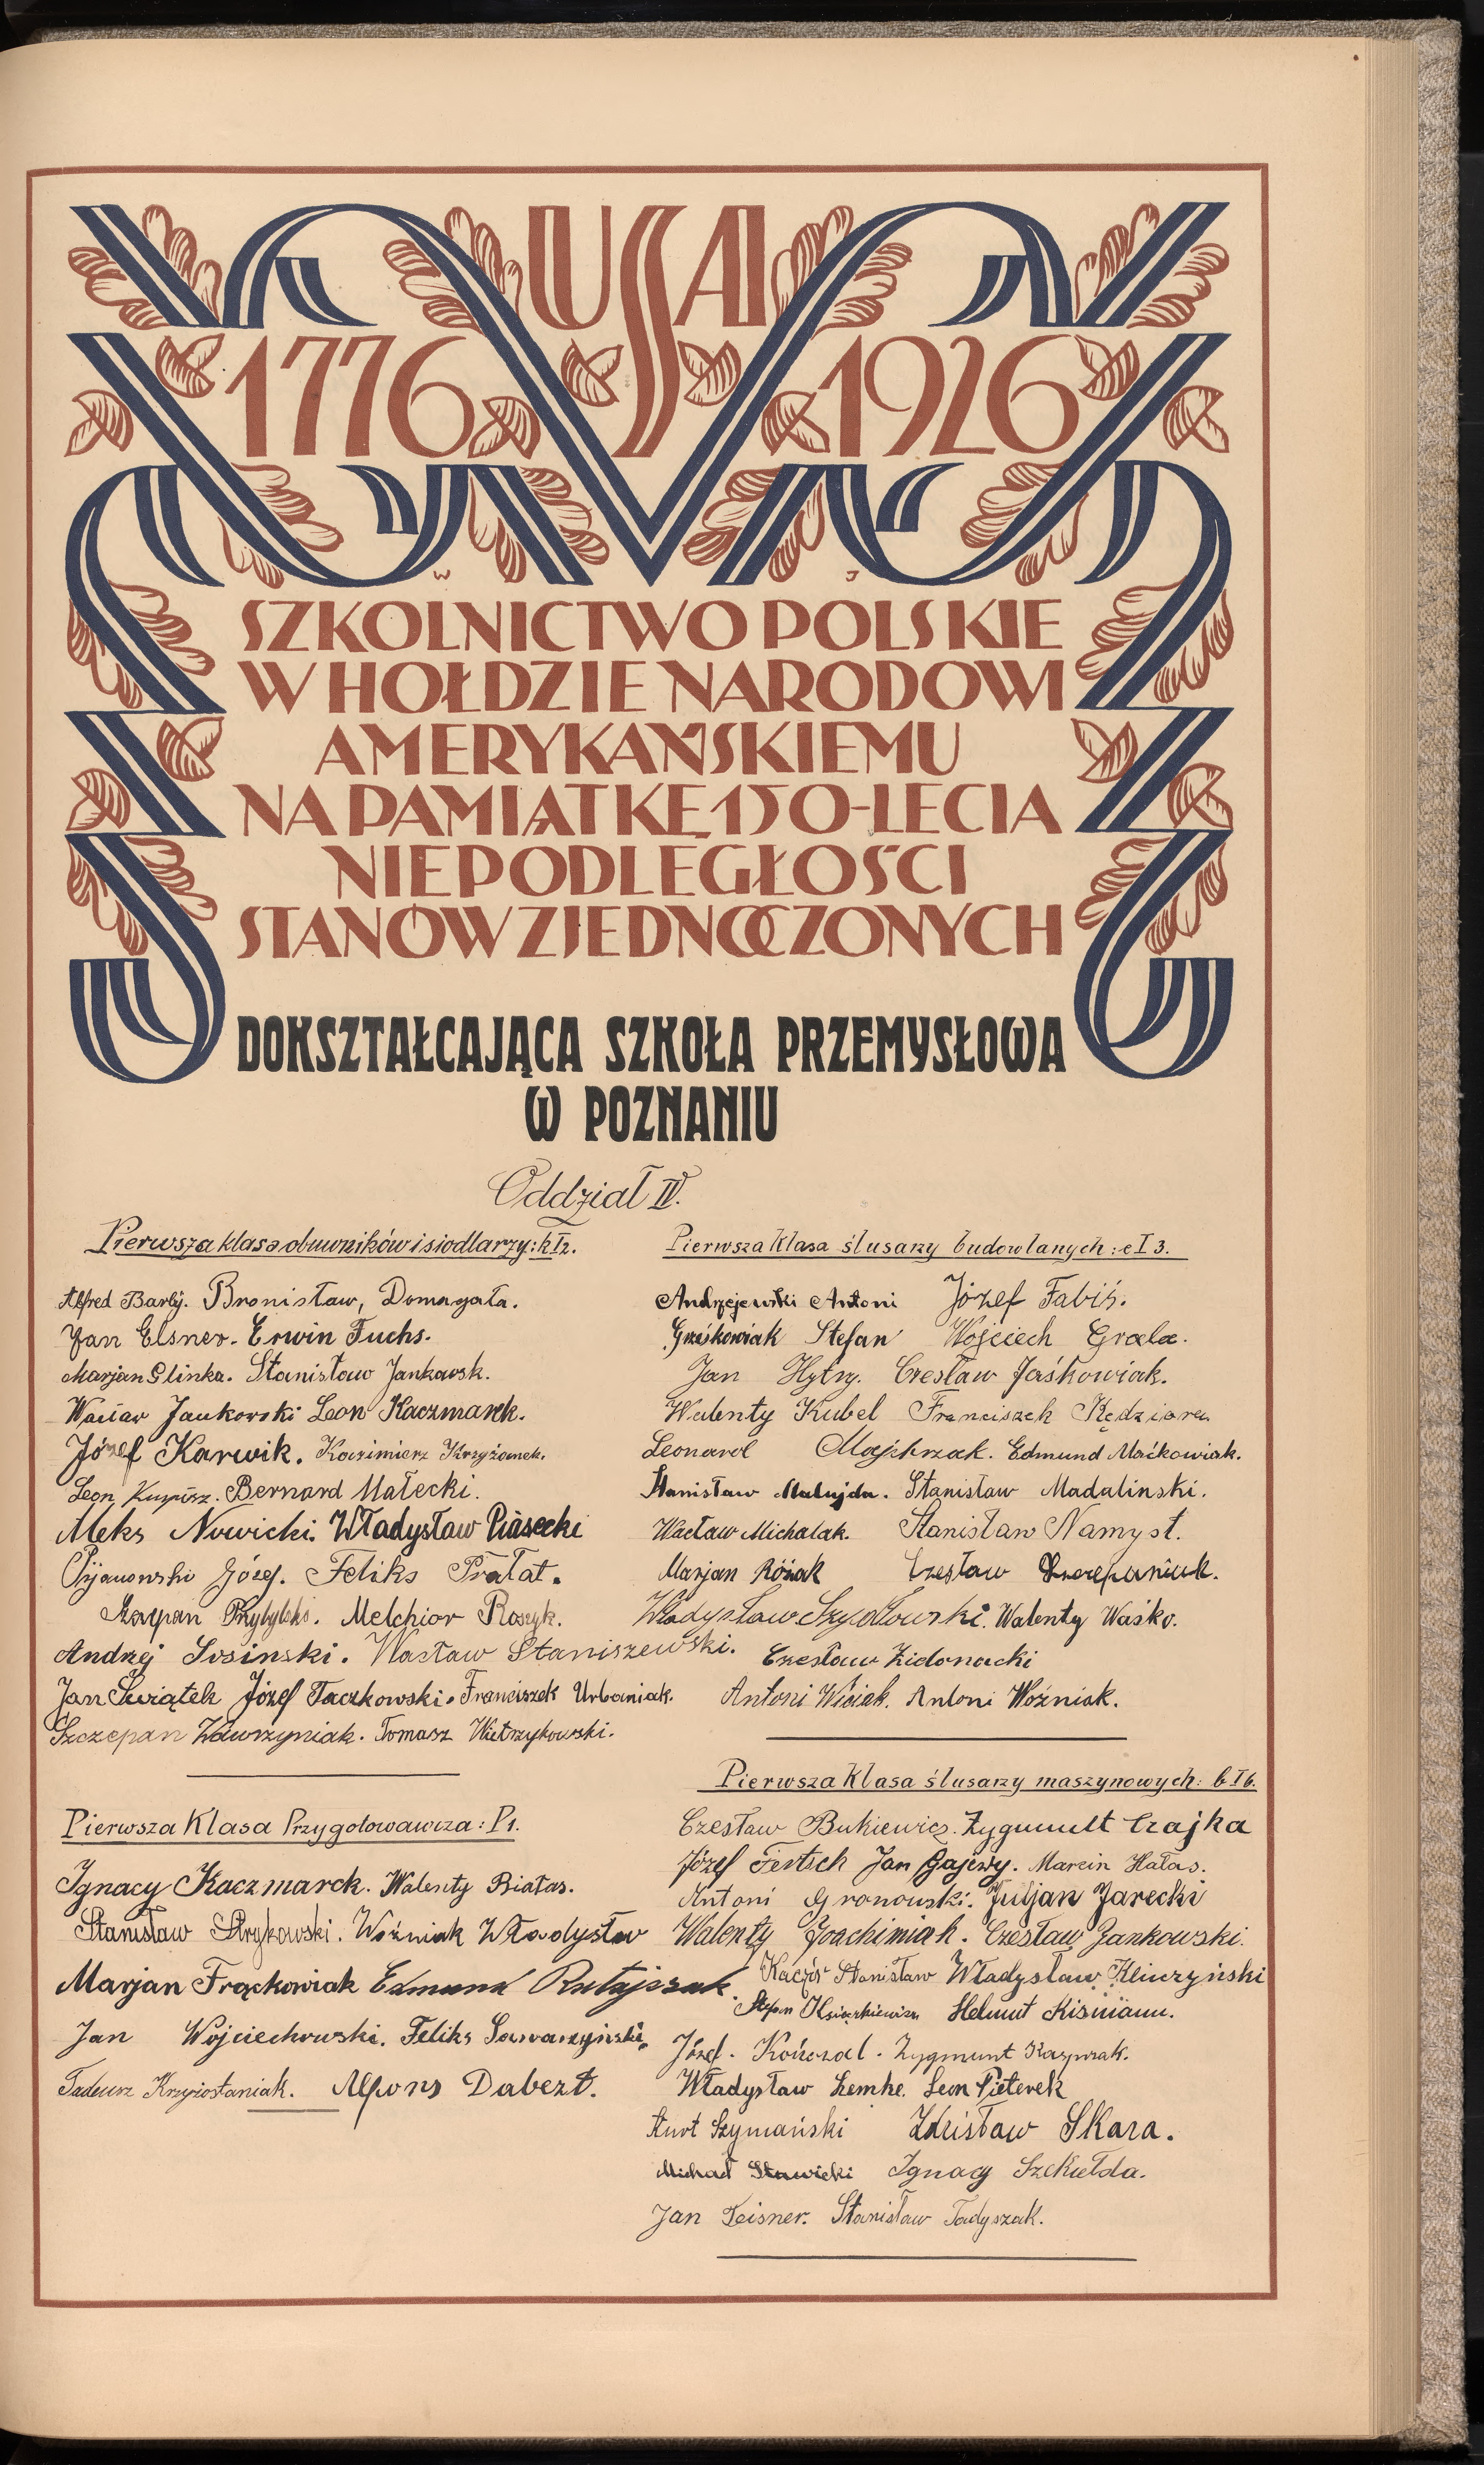 USA
1776 1926
W J
SZKOLNICTWO POLSKIE
W HOŁDZIE NARODOWI
AMERYKAŃSKIEMU
NA PAMIĄTKĘ 150-LECIA
NIEPODLEGŁOŚCI
STANÓW ZJEDNOCZONYCH
DOKSZTAŁCAJĄCA SZKOŁA PRZEMYSŁOWA
W POZNANIU
Oddział IV.
Pierwsza klasa obuwników i siodlarzy: k I2.
Alfred Barbÿ. Bronisław, Domagała.
Jan Elsner. Erwin Fuchs.
Marjan Glinka. Stanisław Jankowsk.
Wacław Jankowski Leon Kaczmarek.
Józef Karwik. Kazimierz Krzyżanek.
Leon Bernard Małecki.
Aleks Nowicki. Władysław Piasecki
Pijanowski Józef. Feliks Prałat.
Szczepan Przybylski. Melchior Roszyk.
Andrzej Sosinski. Wacław Staniszewski.
Jan Świątek Józef Taczkowski. Franciszek Urbaniak.
Szczepan Wawrzyniak. Tomasz Wietrzykowski.
Pierwsza Klasa Przygotowawcza: P1.
Ignacy Kaczmarek. Walenty Białas.
Stanisław Strykowski. Woźniak Władysław
Marjan Frąckowiak Edmund Ratajszak.
Jan Wojciechowski. Feliks
Tadeusz Krzyżostaniak. Alfons Dabert.
Pierwsza Klasa ślusarzy budowlanych: e I 3.
Andrzejewski Antoni Józef Fabiś.
Grześkowiak Stefan Wojciech Grala.
Jan Hytry. Czesław Jaśkowiak.
Walenty Kubel Franciszek Kędziora
Leonard Majchrzak. Edmund Maćkowiak.
Stanisław Matujda. Stanisław Madalinski.
Wacław Michalak. Stanisław Namysł.
Marjan Różak Czesław Szczepaniak.
Władysław Szydłowski. Walenty Waśko.
Czesław Zidonacki
Antoni Wiciak. Antoni Woźniak.
Pierwsza Klasa ślusarzy maszynowych: b I 6.
Czesław Bukiewicz. Zygmunt Czajka
Józef Fertsch Jan Gajewy. Marcin Hałas.
Antoni Gronowski. Juljan Jarecki
Walenty Joachimiak. Czesław Jankowski.
Kaczór Stanisław Władysław Kliuczyński
Stefan Książkiewicz Helmut Kismann.
Józef. Kończal. Zygmunt Kasprzak.
Władysław Lemke. Leon Pieterek
Kurt Szymański Zdzisław Skara.
Michał Sławicki Ignacy Szekiełda.
Jan Teisner. Stanisław Tadyszak.